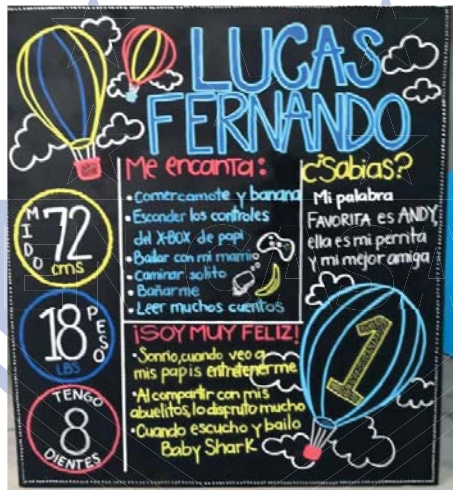 LUCAS
FERNANDO
Me encanta:
• Comer camote y banana
• Esconder los controles
del X-BOX de papi
• Bailar con mi mami
• Caminar solito
• Bañarme
• Leer muchos cuentos
¿Sabias?
Mi palabra
FAVORITA es ANDY,
ella es mi perrita
y mi mejor amiga
MIDO
72
cms
18
PESO
LBS
TENGO
8
DIENTES
¡SOY MUY FELIZ!
• Sonrio, cuando veo a
mis papis entretenerme
• Al compartir con mis
abuelitos, lo disfruto mucho
• Cuando escucho y bailo
Baby Shark
1